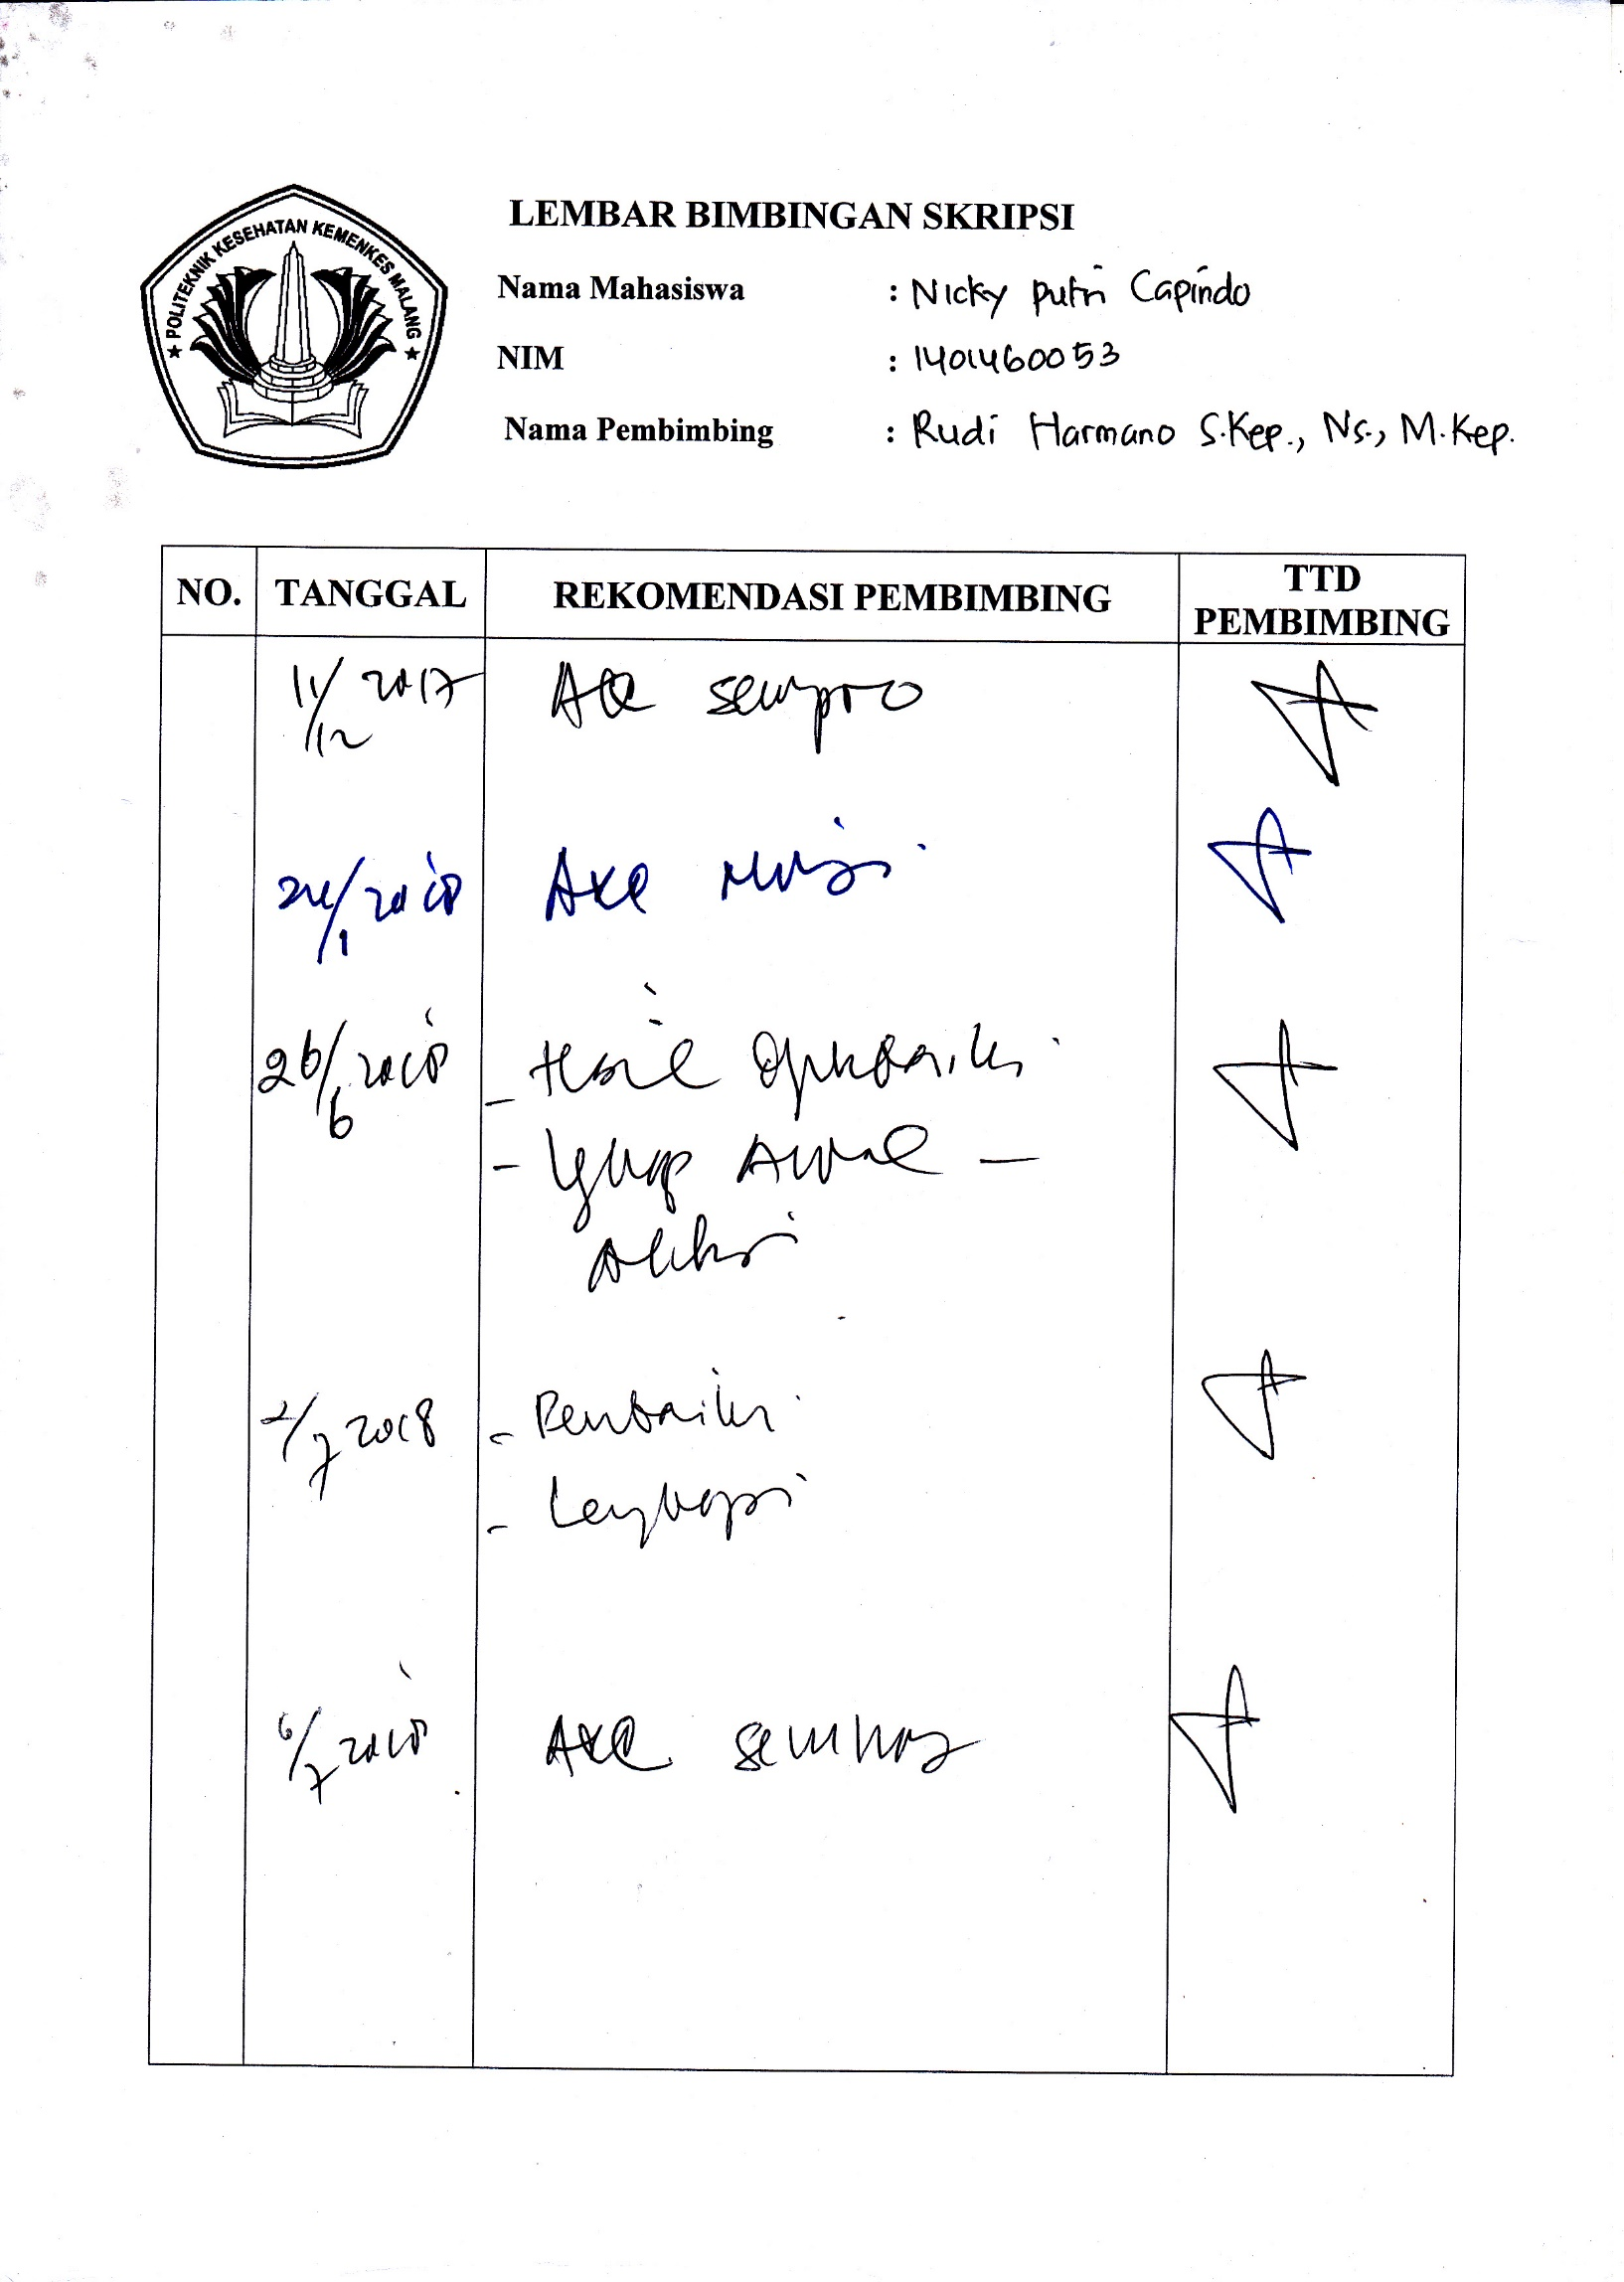 ★ POLITEKNIK KESEHATAN KEMENKES MALANG ★
LEMBAR BIMBINGAN SKRIPSI
Nama Mahasiswa : Nicky Putri Capindo
NIM : 1401460053
Nama Pembimbing : Rudi Harmano S.Kep., Ns., M.Kep.
NO. TANGGAL REKOMENDASI PEMBIMBING TTD PEMBIMBING
11/12 2017 Acc sempro
24/1 2018
26/6 2018 - Hasil
- Awal -
2/7 2018 -
- Lengkapi
6/7 2018 Acc semhas